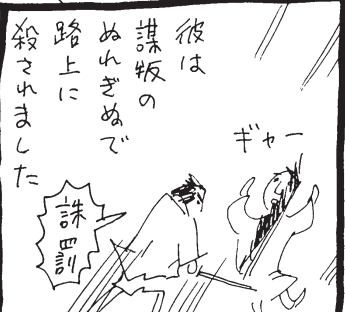 彼は
謀叛の
ぬれぎぬで
路上に
殺されました
ギャー
誅罰